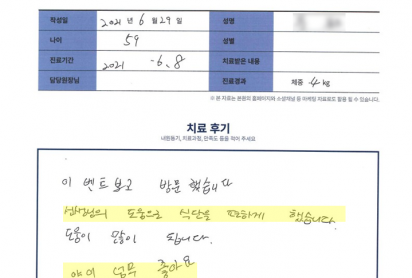 작성일 2021 년 6 월 29 일 성명
나이 59 성별
진료기간 2021 . 6. 8 치료받은 내용
담당원장님 진료경과 체중 -4 kg
※ 본 자료는 본원의 홈페이지와 소셜채널 등 마케팅 자료로도 활용 될 수 있습니다.
치료 후기
내원동기, 치료과정, 만족도 등을 적어 주세요
이벤트 보고 방문 했습니다
선생님의 도움으로 식단을 편하게 했습니다.
도움이 많이 됩니다.
약이 너무 좋아요